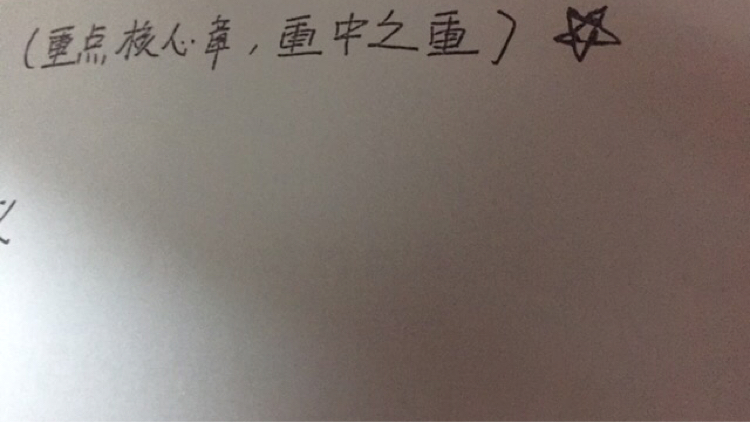 (重点核心章，重中之重) ☆